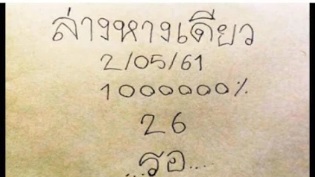 ล่างหางเดียว
2/05/61
1000000%
26
...รอ...